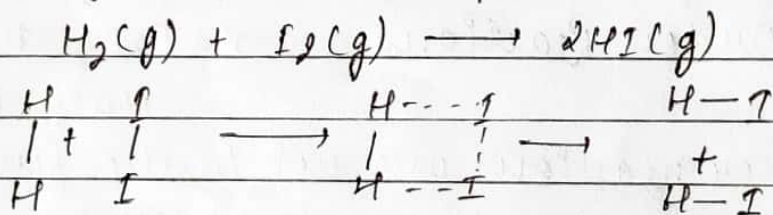 H₂(g) + I₂(g) ⟶ 2HI(g)
H I H----I H—I
| + | ⟶ | ¦ ⟶ +
H I H---I H—I